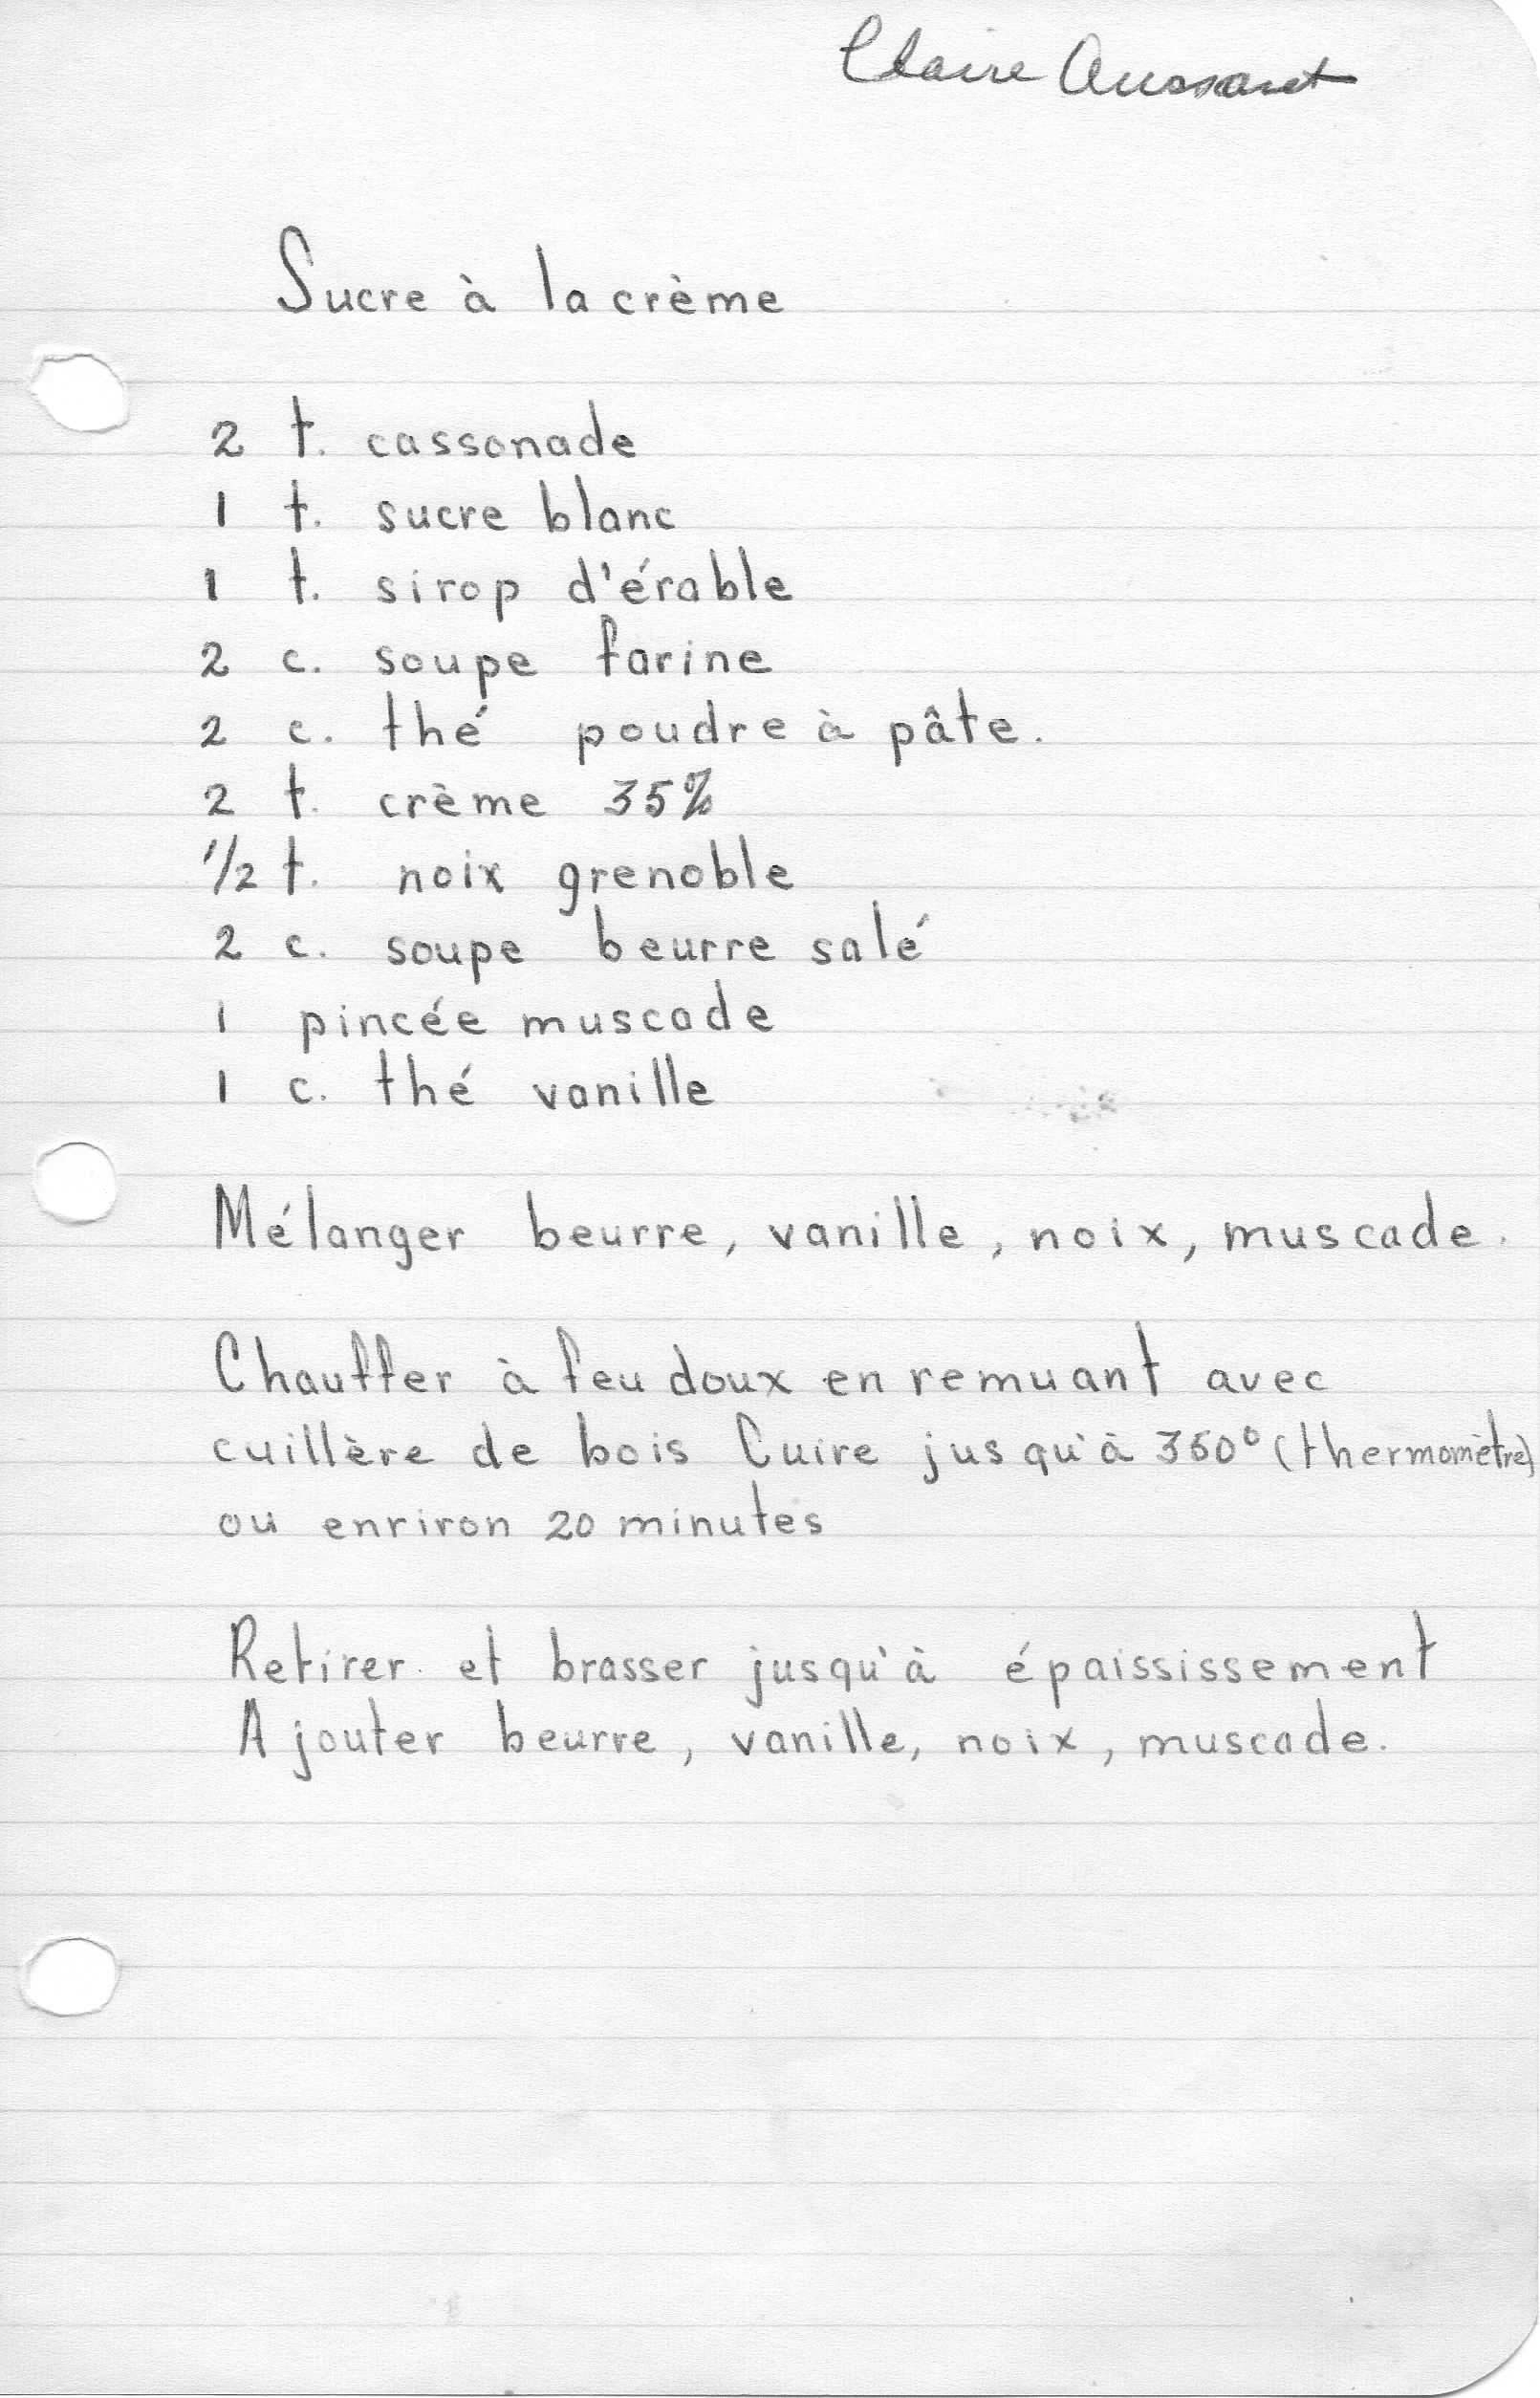 Claire Aussant
Sucre à la crème
2 t. cassonade
1 t. sucre blanc
1 t. sirop d'érable
2 c. soupe farine
2 c. thé poudre à pâte.
2 t. crème 35%
1/2 t. noix grenoble
2 c. soupe beurre salé
1 pincée muscade
1 c. thé vanille
Mélanger beurre, vanille, noix, muscade.
Chauffer à feu doux en remuant avec
cuillère de bois Cuire jusqu'à 350° (thermomètre)
ou enriron 20 minutes
Retirer et brasser jusqu'à épaississement
Ajouter beurre, vanille, noix, muscade.